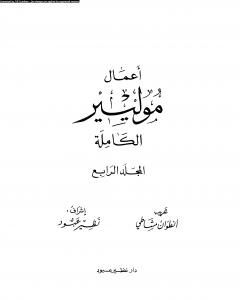 أعمال
موليير
الكاملة
المجلد الرابع
تعريب
انطوان مشاطي
إشراف:
نظير عبود
دار نظير عبود